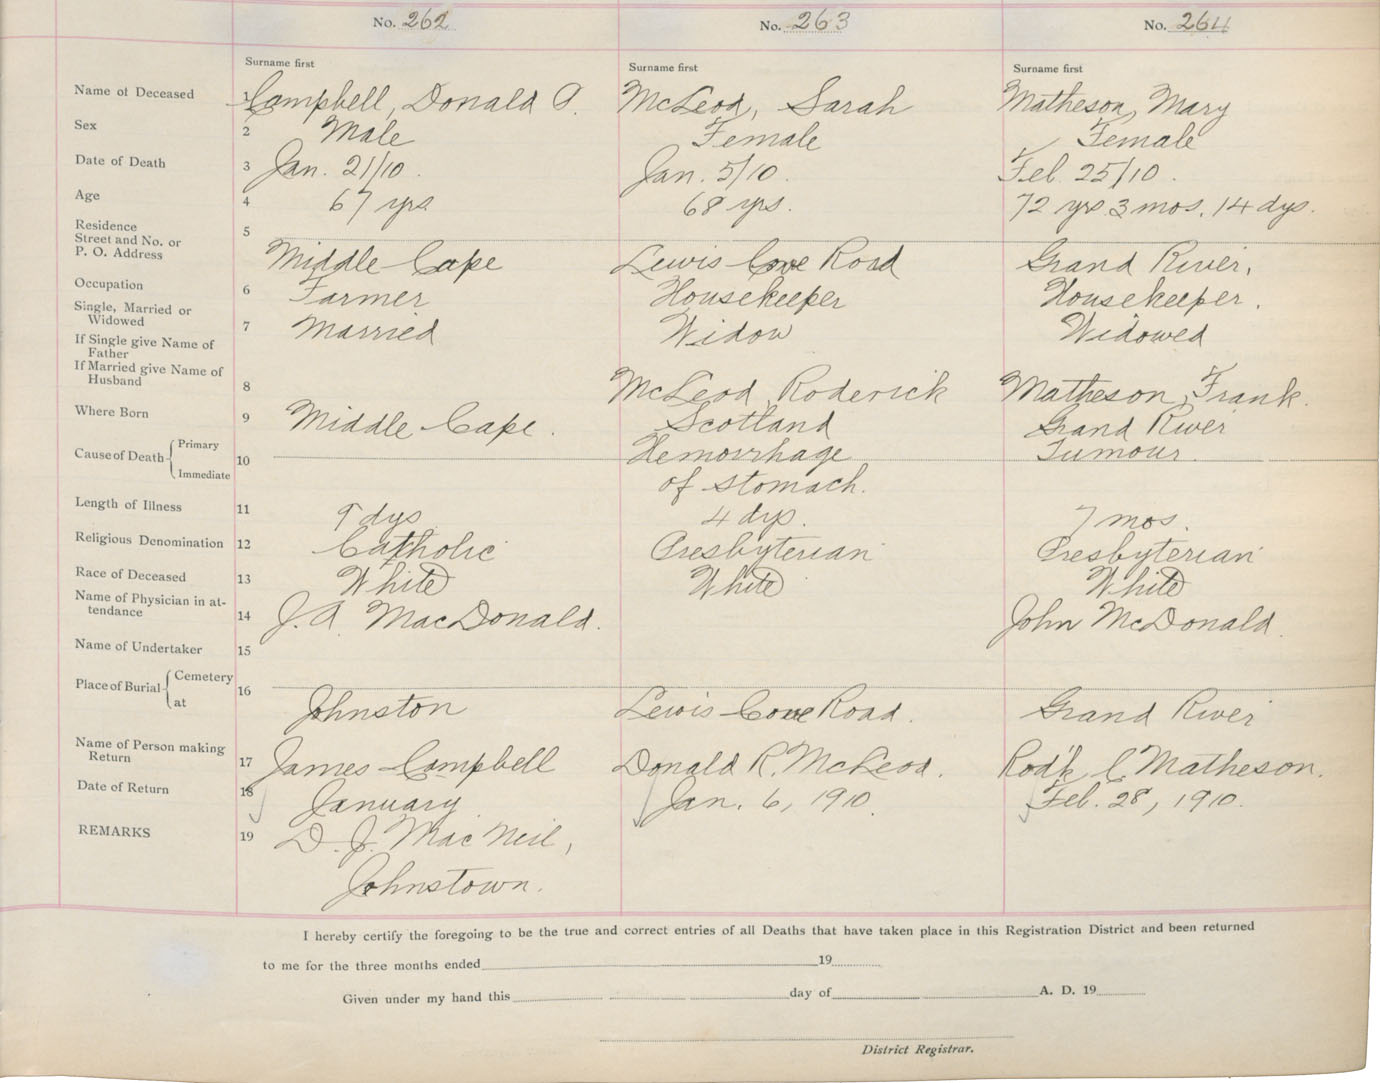 No. 262 No. 263 No. 264
Surname first Surname first Surname first
Name of Deceased 1 Campbell, Donald P. McLeod, Sarah Matheson, Mary
Sex 2 Male Female Female
Date of Death 3 Jan. 21/10. Jan. 5/10. Feb. 25/10.
Age 4 67 yrs 68 yrs. 72 yrs 3 mos. 14 dys.
Residence
Street and No. or
P. O. Address 5 Middle Cape Lewis Cove Road Grand River,
Occupation 6 Farmer Housekeeper Housekeeper.
Single, Married or
Widowed 7 Married Widow Widowed
If Single give Name of
Father
If Married give Name of
Husband 8 McLeod, Roderick Matheson, Frank.
Where Born 9 Middle Cape. Scotland Grand River
Cause of Death Primary 10 Hemorrhage Tumour.
Immediate of stomach.
Length of Illness 11 9 dys 4 dys. 7 mos.
Religious Denomination 12 Catholic Presbyterian Presbyterian
Race of Deceased 13 White White White
Name of Physician in at-
tendance 14 J. A. MacDonald. John McDonald.
Name of Undertaker 15
Place of Burial Cemetery 16
at Johnston Lewis Cove Road. Grand River
Name of Person making
Return 17 James Campbell Donald R. McLeod. Rod'k C Matheson.
Date of Return 18 January Jan. 6, 1910. Feb. 28, 1910.
REMARKS 19 D. J. MacNeil,
Johnstown.
I hereby certify the foregoing to be the true and correct entries of all Deaths that have taken place in this Registration District and been returned
to me for the three months ended 19
Given under my hand this day of A. D. 19
District Registrar.